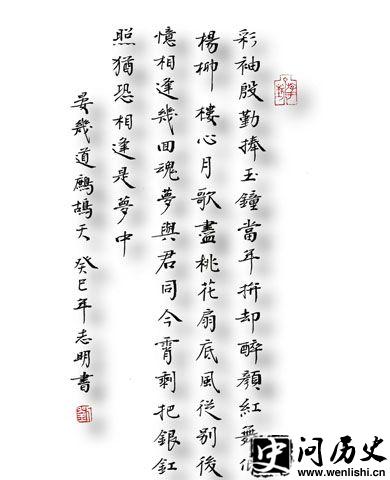 彩袖殷勤捧玉鐘當年拚却醉顏紅舞低
楊柳樓心月歌盡桃花扇底風從別後
憶相逢幾回魂夢與君同今霄剩把銀釭
照猶恐相逢是夢中
晏幾道鷓鴣天 癸巳年志明書
史 问历史
www.wenlishi.cn